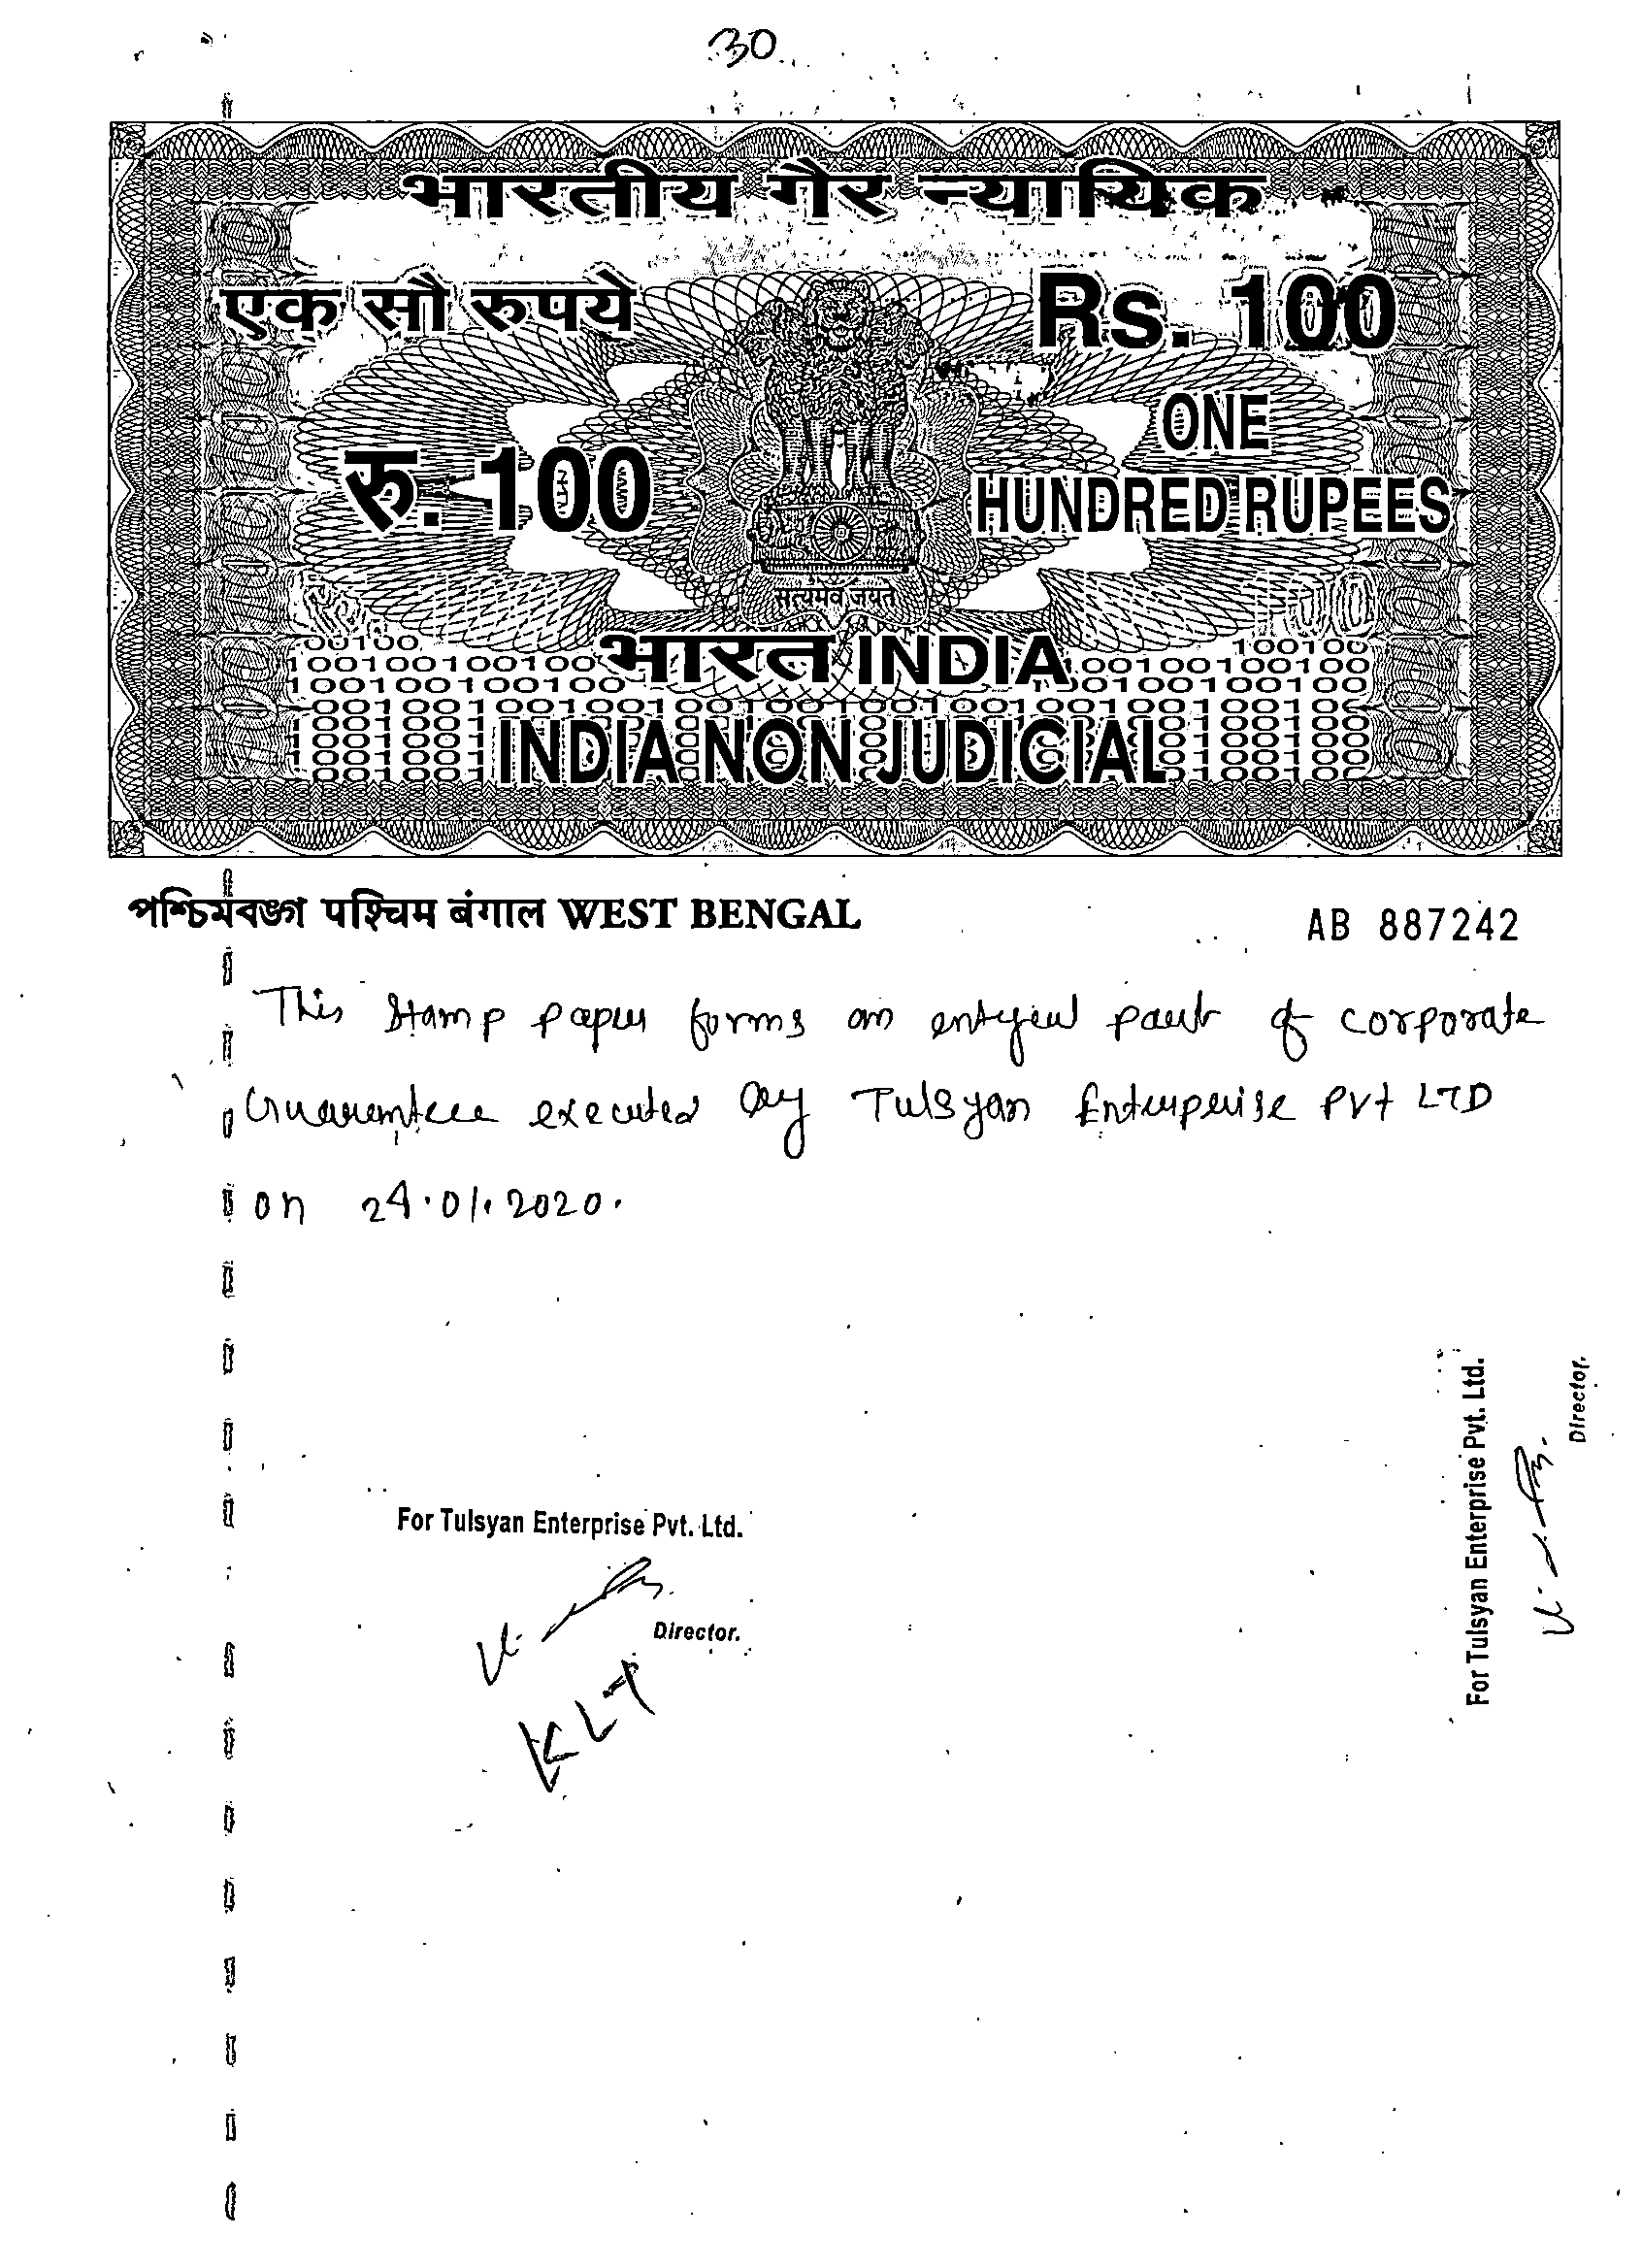 30
भारतीय गैर न्यायिक
एक सौ रुपये
Rs. 100
रु. 100
ONE
HUNDRED RUPEES
सत्यमेव जयते
भारत INDIA
INDIA NON JUDICIAL
পশ্চিমবঙ্গ पश्चिम बंगाल WEST BENGAL
AB 887242
This Stamp paper forms an part of corporate
Guarantee executed by Tulsyan Enterprise Pvt LTD
on 24.01.2020.
For Tulsyan Enterprise Pvt. Ltd.
Director.
KLT
For Tulsyan Enterprise Pvt. Ltd.
Director.